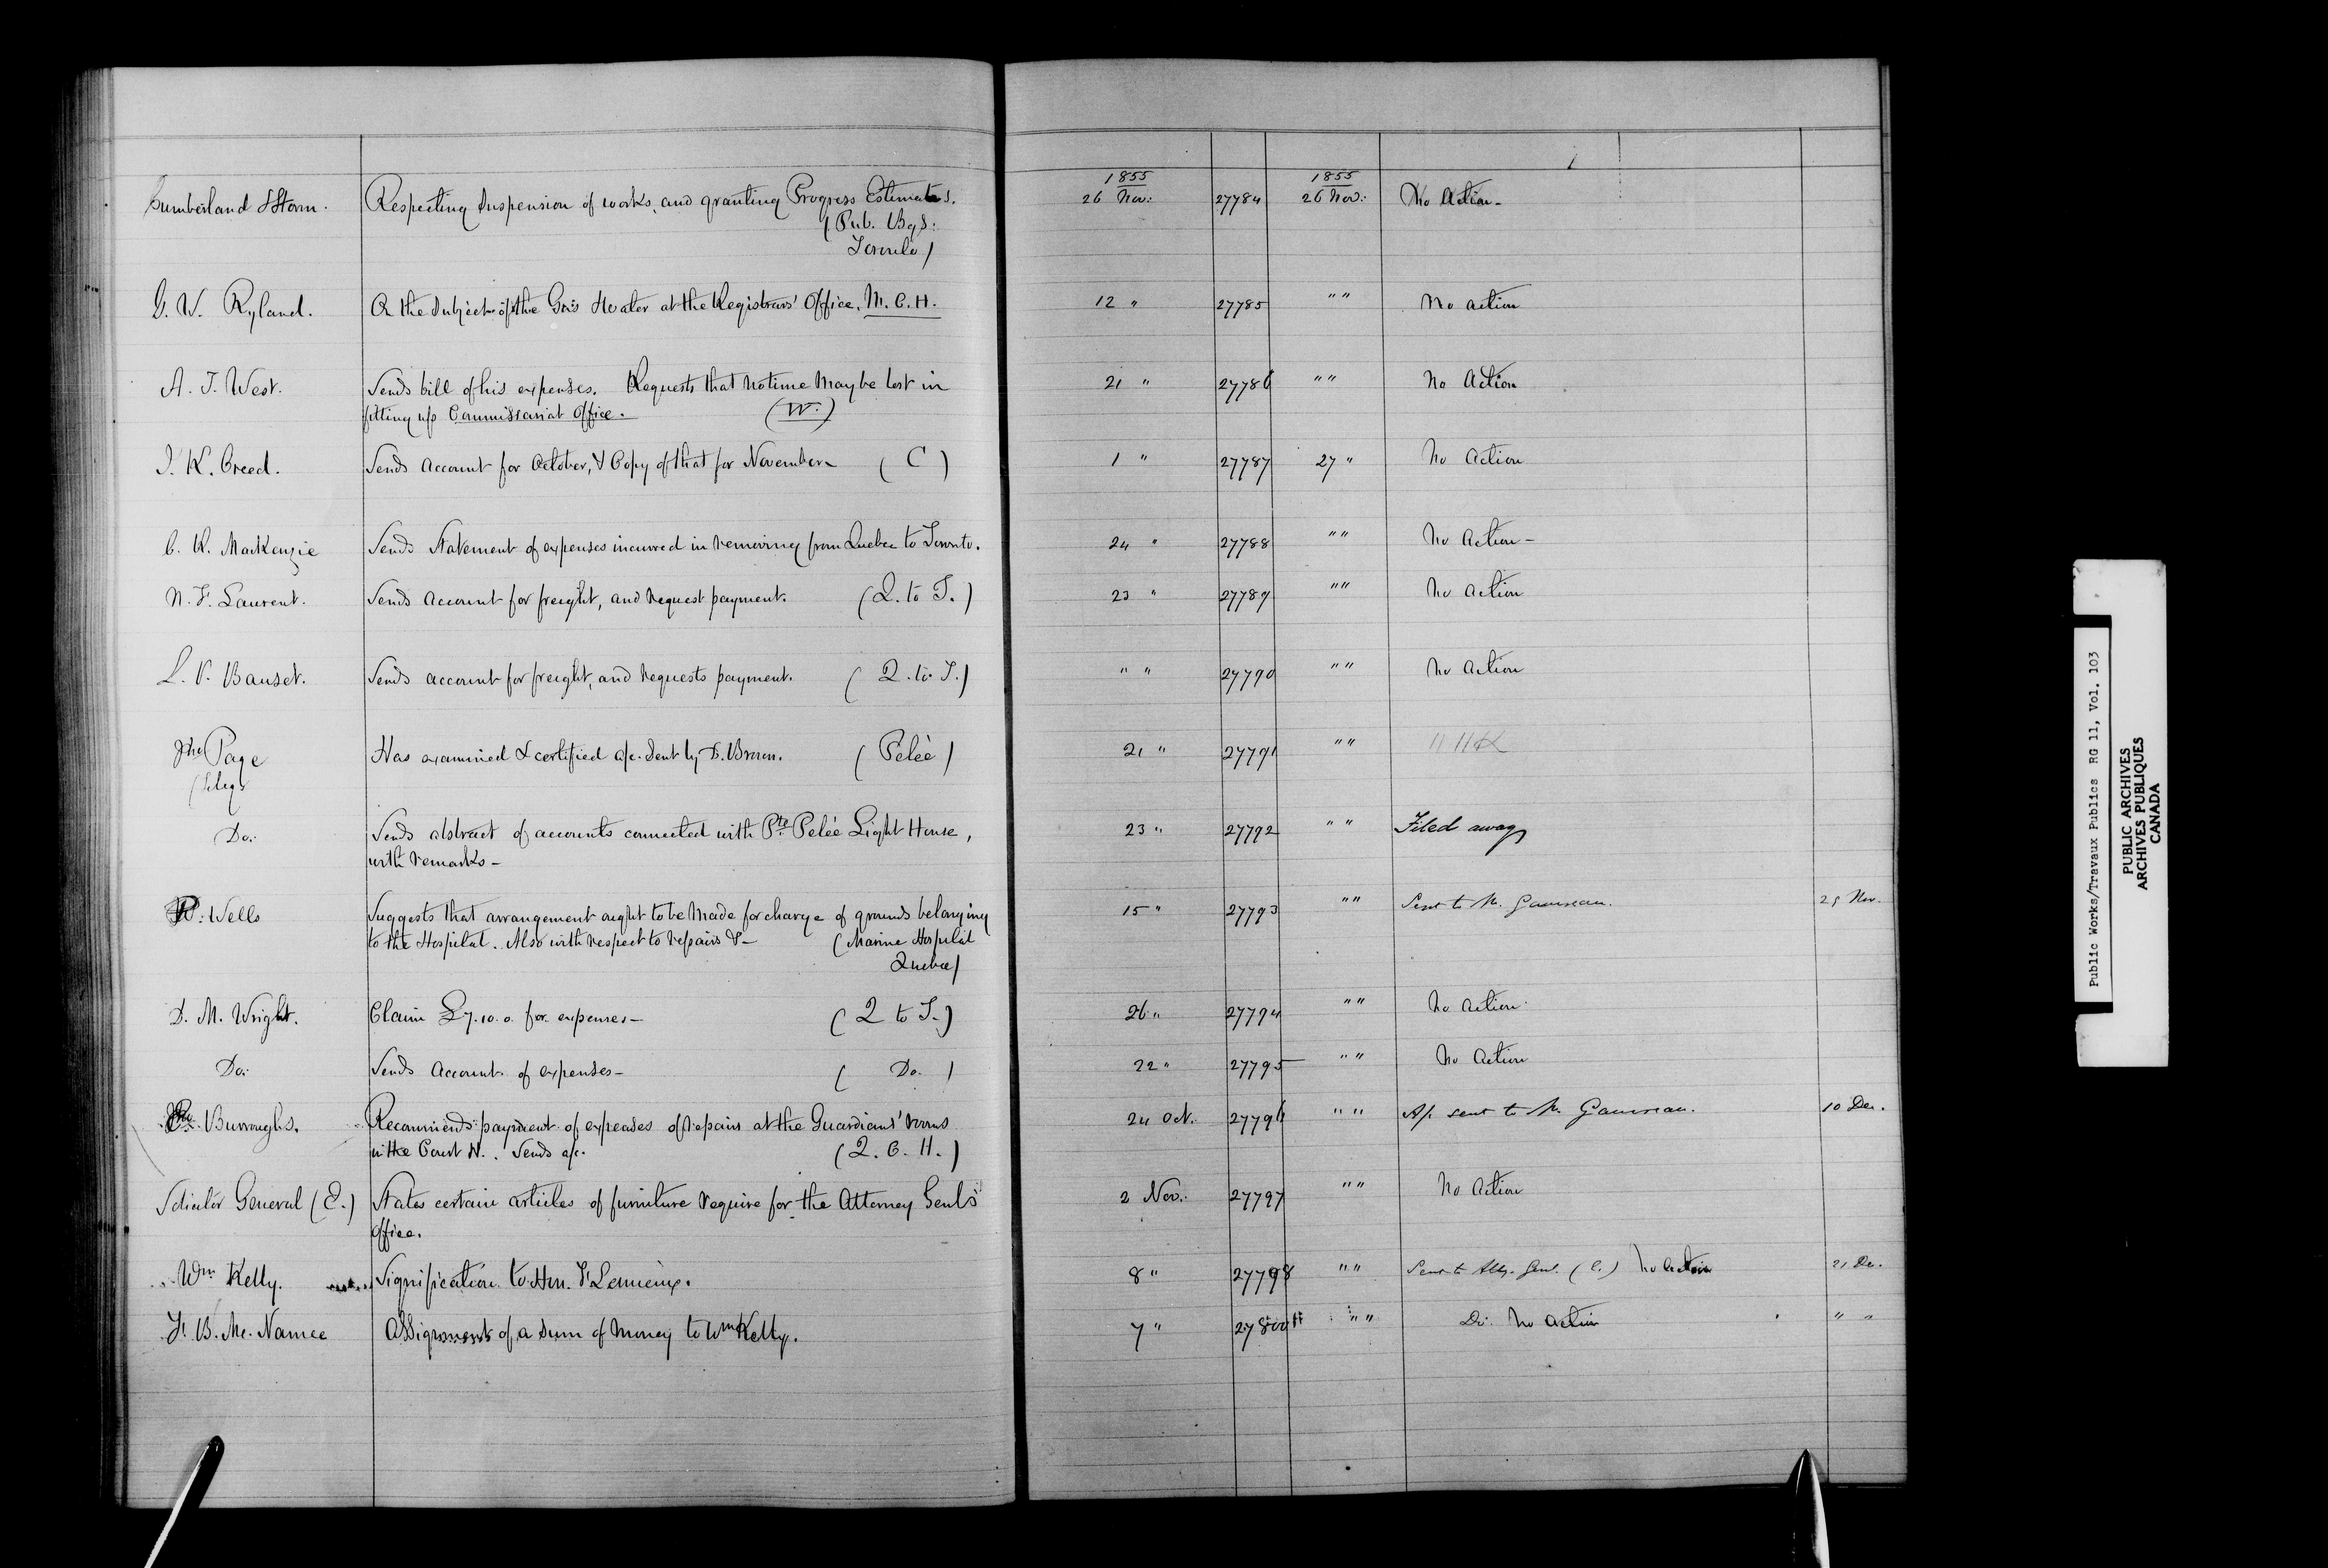 1855 1855
Cumberland & Storm. Respecting Suspension of works, and granting Progress Estimates. 26 Nov: 27784 26 Nov: No Action-
(Pub. Bgs:
Toronto)
G. W. Ryland. On the Subject of the Gas Heater at the Registrars' Office. M. C. H. 12 " 27785 " " No action
A. T. West. Sends bill of his expenses. Requests that no time may be lost in 21 " 27786 " " No Action
fitting up Commissariat Office. (W.)
J. K. Creed. Sends Account for October, & Copy of that for November- (C) 1 " 27787 27 " No Action
C. K. MacKenzie Sends Statement of expenses incurred in removing from Quebec to Toronto. 24 " 27788 " " No Action-
N. F. Laurent. Sends Account for freight, and request payment. (Q. to T.) 23 " 27789 " " No Action
L. V. Bauset. Sends account for freight, and requests payment. (Q. to T.) " " 27790 " " No Action
Jno Page Has examined & certified a/c. sent by D. Brown. (Pelée) 21 " 27791 " "
Do: Sends abstract of accounts connected with Pte. Pelée Light House, 23 " 27792 " " Filed away
with remarks-
W. Wells Suggests that arrangement ought to be made for charge of grounds belonging 15 " 27793 " " Sent to Mr. Gauvreau. 29 Nov.
to the Hospital. Also with respect to repairs &- (Marine Hospital
Quebec)
D. M. Wright. Claim £7.10.0. for expenses- (Q to T.) 26 " 27794 " " No Action
Do: Sends Account of expenses- (Do.) 22 " 27795 " " No Action
Burroughs. Recommends payment of expenses of repairs at the Guardians' rooms 24 Oct. 27796 " " A/c sent to Mr. Gauvreau. 10 Dec.
in the Court H.. Sends a/c. (Q. C. H.)
Solicitor General (E.) States certain articles of furniture require for the Attorney Genl's 2 Nov: 27797 " " No Action
Office.
Wm Kelly. Signification to Hon. F Lemieux. 8 " 27798 " " Sent to Atty. Genl. (C.) No Action 21 Dec.
F. B. Mc. Namee Assignment of a sum of money to Wm Kelly. 7 " 27800 " " Do. No action " "
Public Works/Travaux Publics RG 11, Vol. 103
PUBLIC ARCHIVES
ARCHIVES PUBLIQUES
CANADA